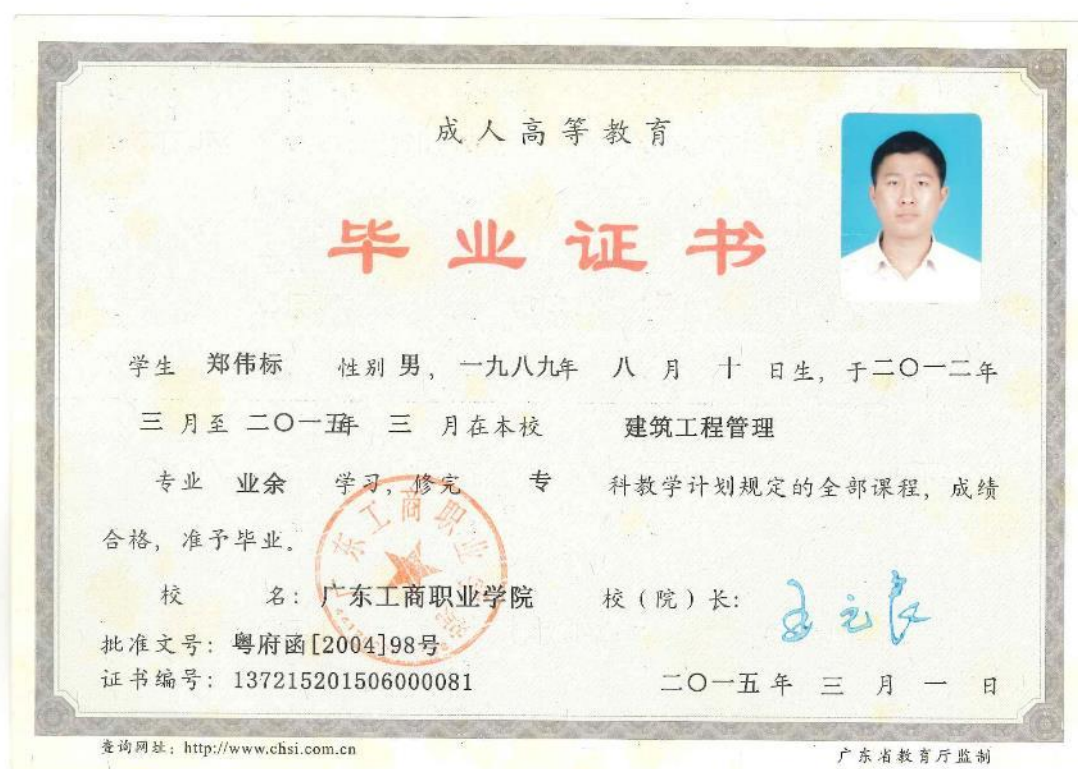 成人高等教育
毕业证书
学生 郑伟标 性别 男，一九八九年 八 月 十 日生，于二〇一二年
三 月至 二〇一五年 三 月在本校 建筑工程管理
专业 业余 学习，修完 专 科教学计划规定的全部课程，成绩
合格，准予毕业。
校 名：广东工商职业学院 校（院）长：
批准文号：粤府函[2004]98号
证书编号：137215201506000081 二〇一五年 三 月 一 日
广东工商职业学院
查询网址：http://www.chsi.com.cn 广东省教育厅监制